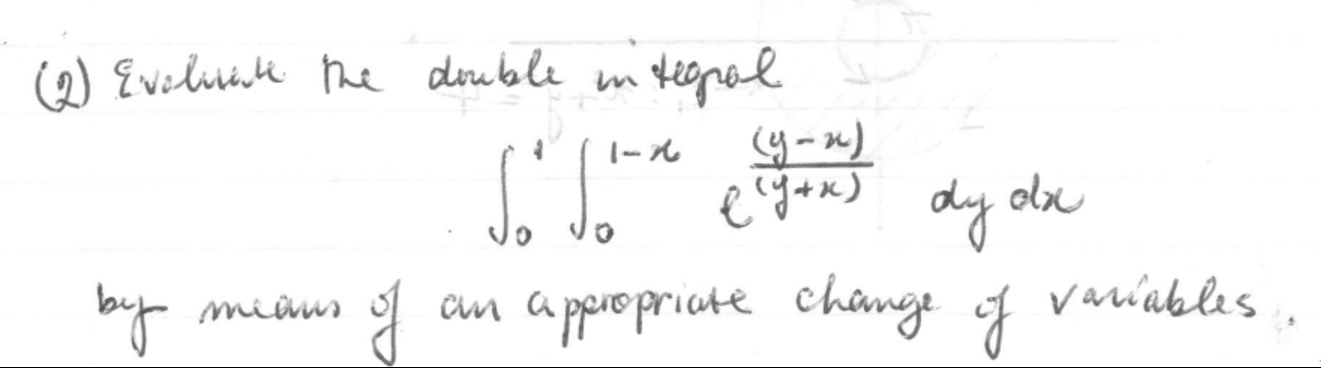 (2) Evaluate the double integral
∫₀¹ ∫₀^{1-x} e^{(y-x)/(y+x)} dy dx
by means of an appropriate change of variables.